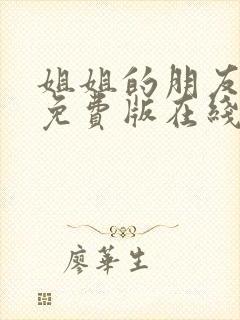 姐姐的朋友
免費版在綫
廖華生